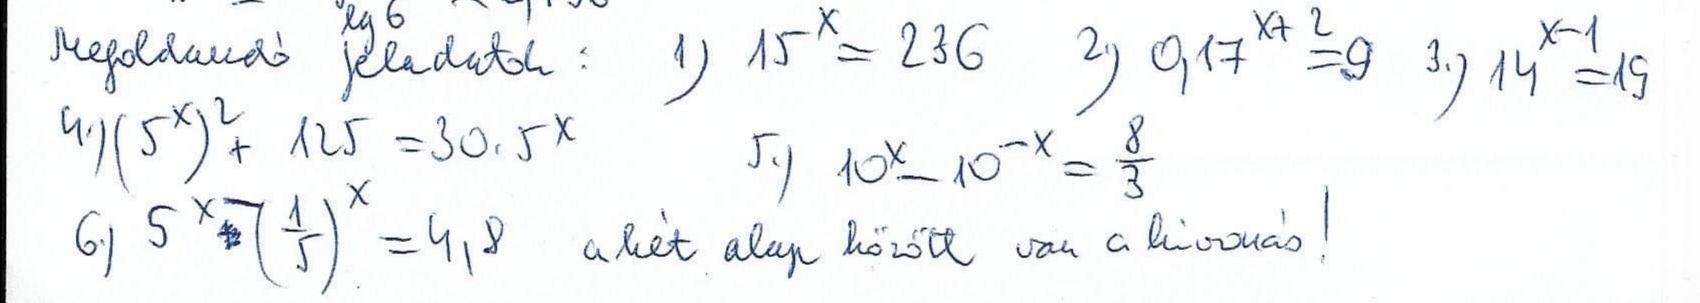 lg 6
Megoldandó feladatok: 1) 15^x = 236 2) 0,17^x+2 = 9 3.) 14^x-1 = 19
4.) (5^x)^2 + 125 = 30.5^x 5.) 10^x - 10^-x = 8/3
6.) 5^x - (1/5)^x = 4,8 a két alap között van a kivonás!